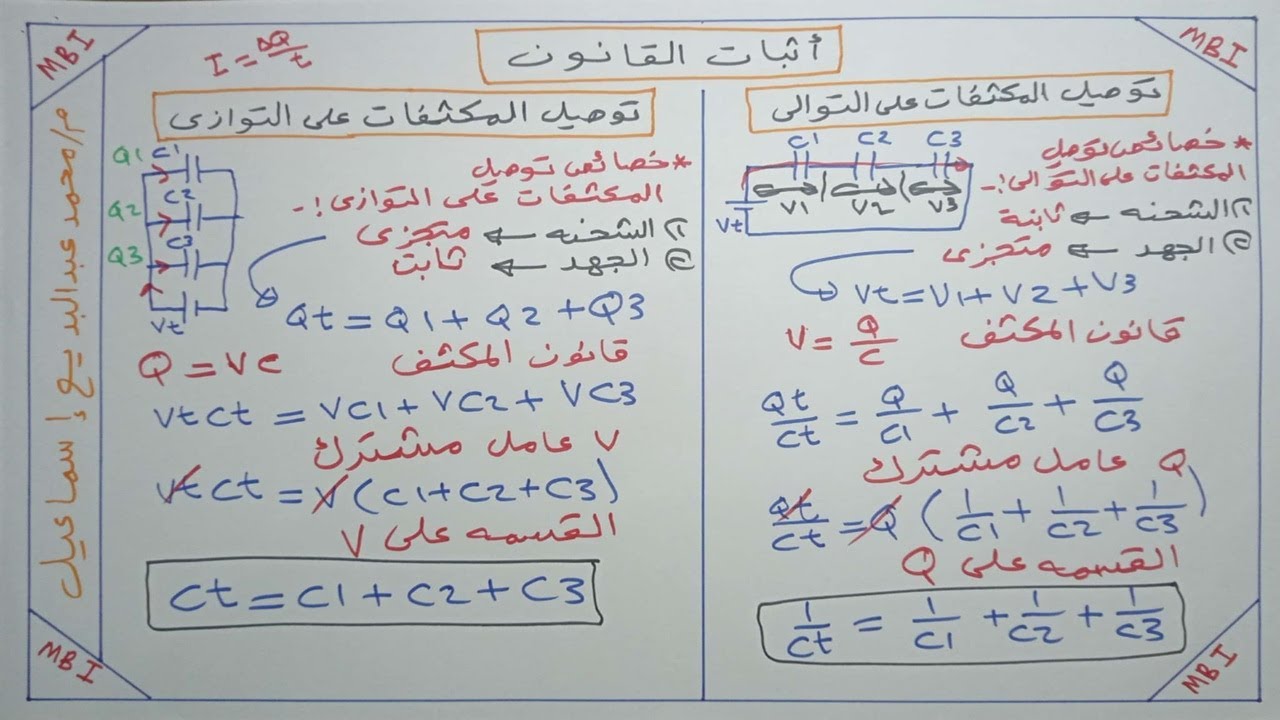 أثبات القانون
I = ΔQ/t
MBI
MBI
MBI
MBI
م/محمد عبدالبديع إسماعيل
توصيل المكثفات على التوالى
C1 C2 C3
V1 V2 V3
Vt
* خصائص توصيل
المكثفات على التوالى :-
١) الشحنه ← ثابتة
٢) الجهد ← متجزى
Vt = V1 + V2 + V3
قانون المكثف V = Q/C
Qt/Ct = Q/C1 + Q/C2 + Q/C3
Q عامل مشترك
Qt/Ct = Q (1/C1 + 1/C2 + 1/C3)
القسمه على Q
1/Ct = 1/C1 + 1/C2 + 1/C3
توصيل المكثفات على التوازى
Q1 C1
Q2 C2
Q3 C3
Vt
* خصائص توصيل
المكثفات على التوازى :-
١) الشحنه ← متجزى
٢) الجهد ← ثابت
Qt = Q1 + Q2 + Q3
قانون المكثف Q = VC
VtCt = VC1 + VC2 + VC3
V عامل مشترك
VtCt = V (C1+C2+C3)
القسمه على V
Ct = C1 + C2 + C3